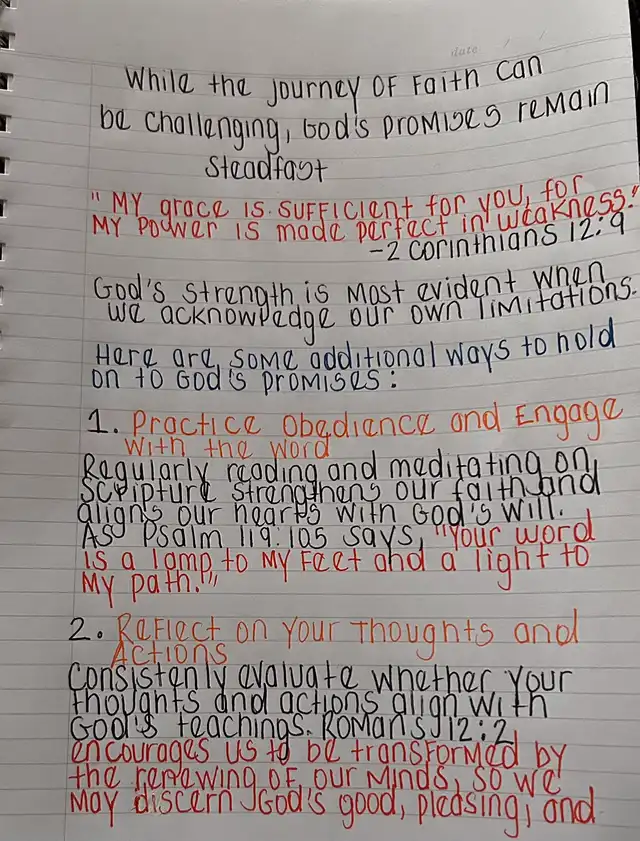 date / /
While the journey of Faith can
be challenging, God's promises remain
steadfast
"My grace is sufficient for you, for
my power is made perfect in weakness."
-2 Corinthians 12:9
God's strength is most evident when
we acknowledge our own limitations.
Here are some additional ways to hold
on to God's promises:
1. Practice Obedience and Engage
with the word
Regularly reading and meditating on
scripture strengthens our faith and
aligns our hearts with God's will.
As Psalm 119:105 says, "Your word
is a lamp to my feet and a light to
my path."
2. Reflect on your Thoughts and
Actions
Consistenly evaluate whether your
thoughts and actions align with
God's teachings. Romans 12:2
encourages us to be transformed by
the renewing of our minds, so we
may discern God's good, pleasing, and